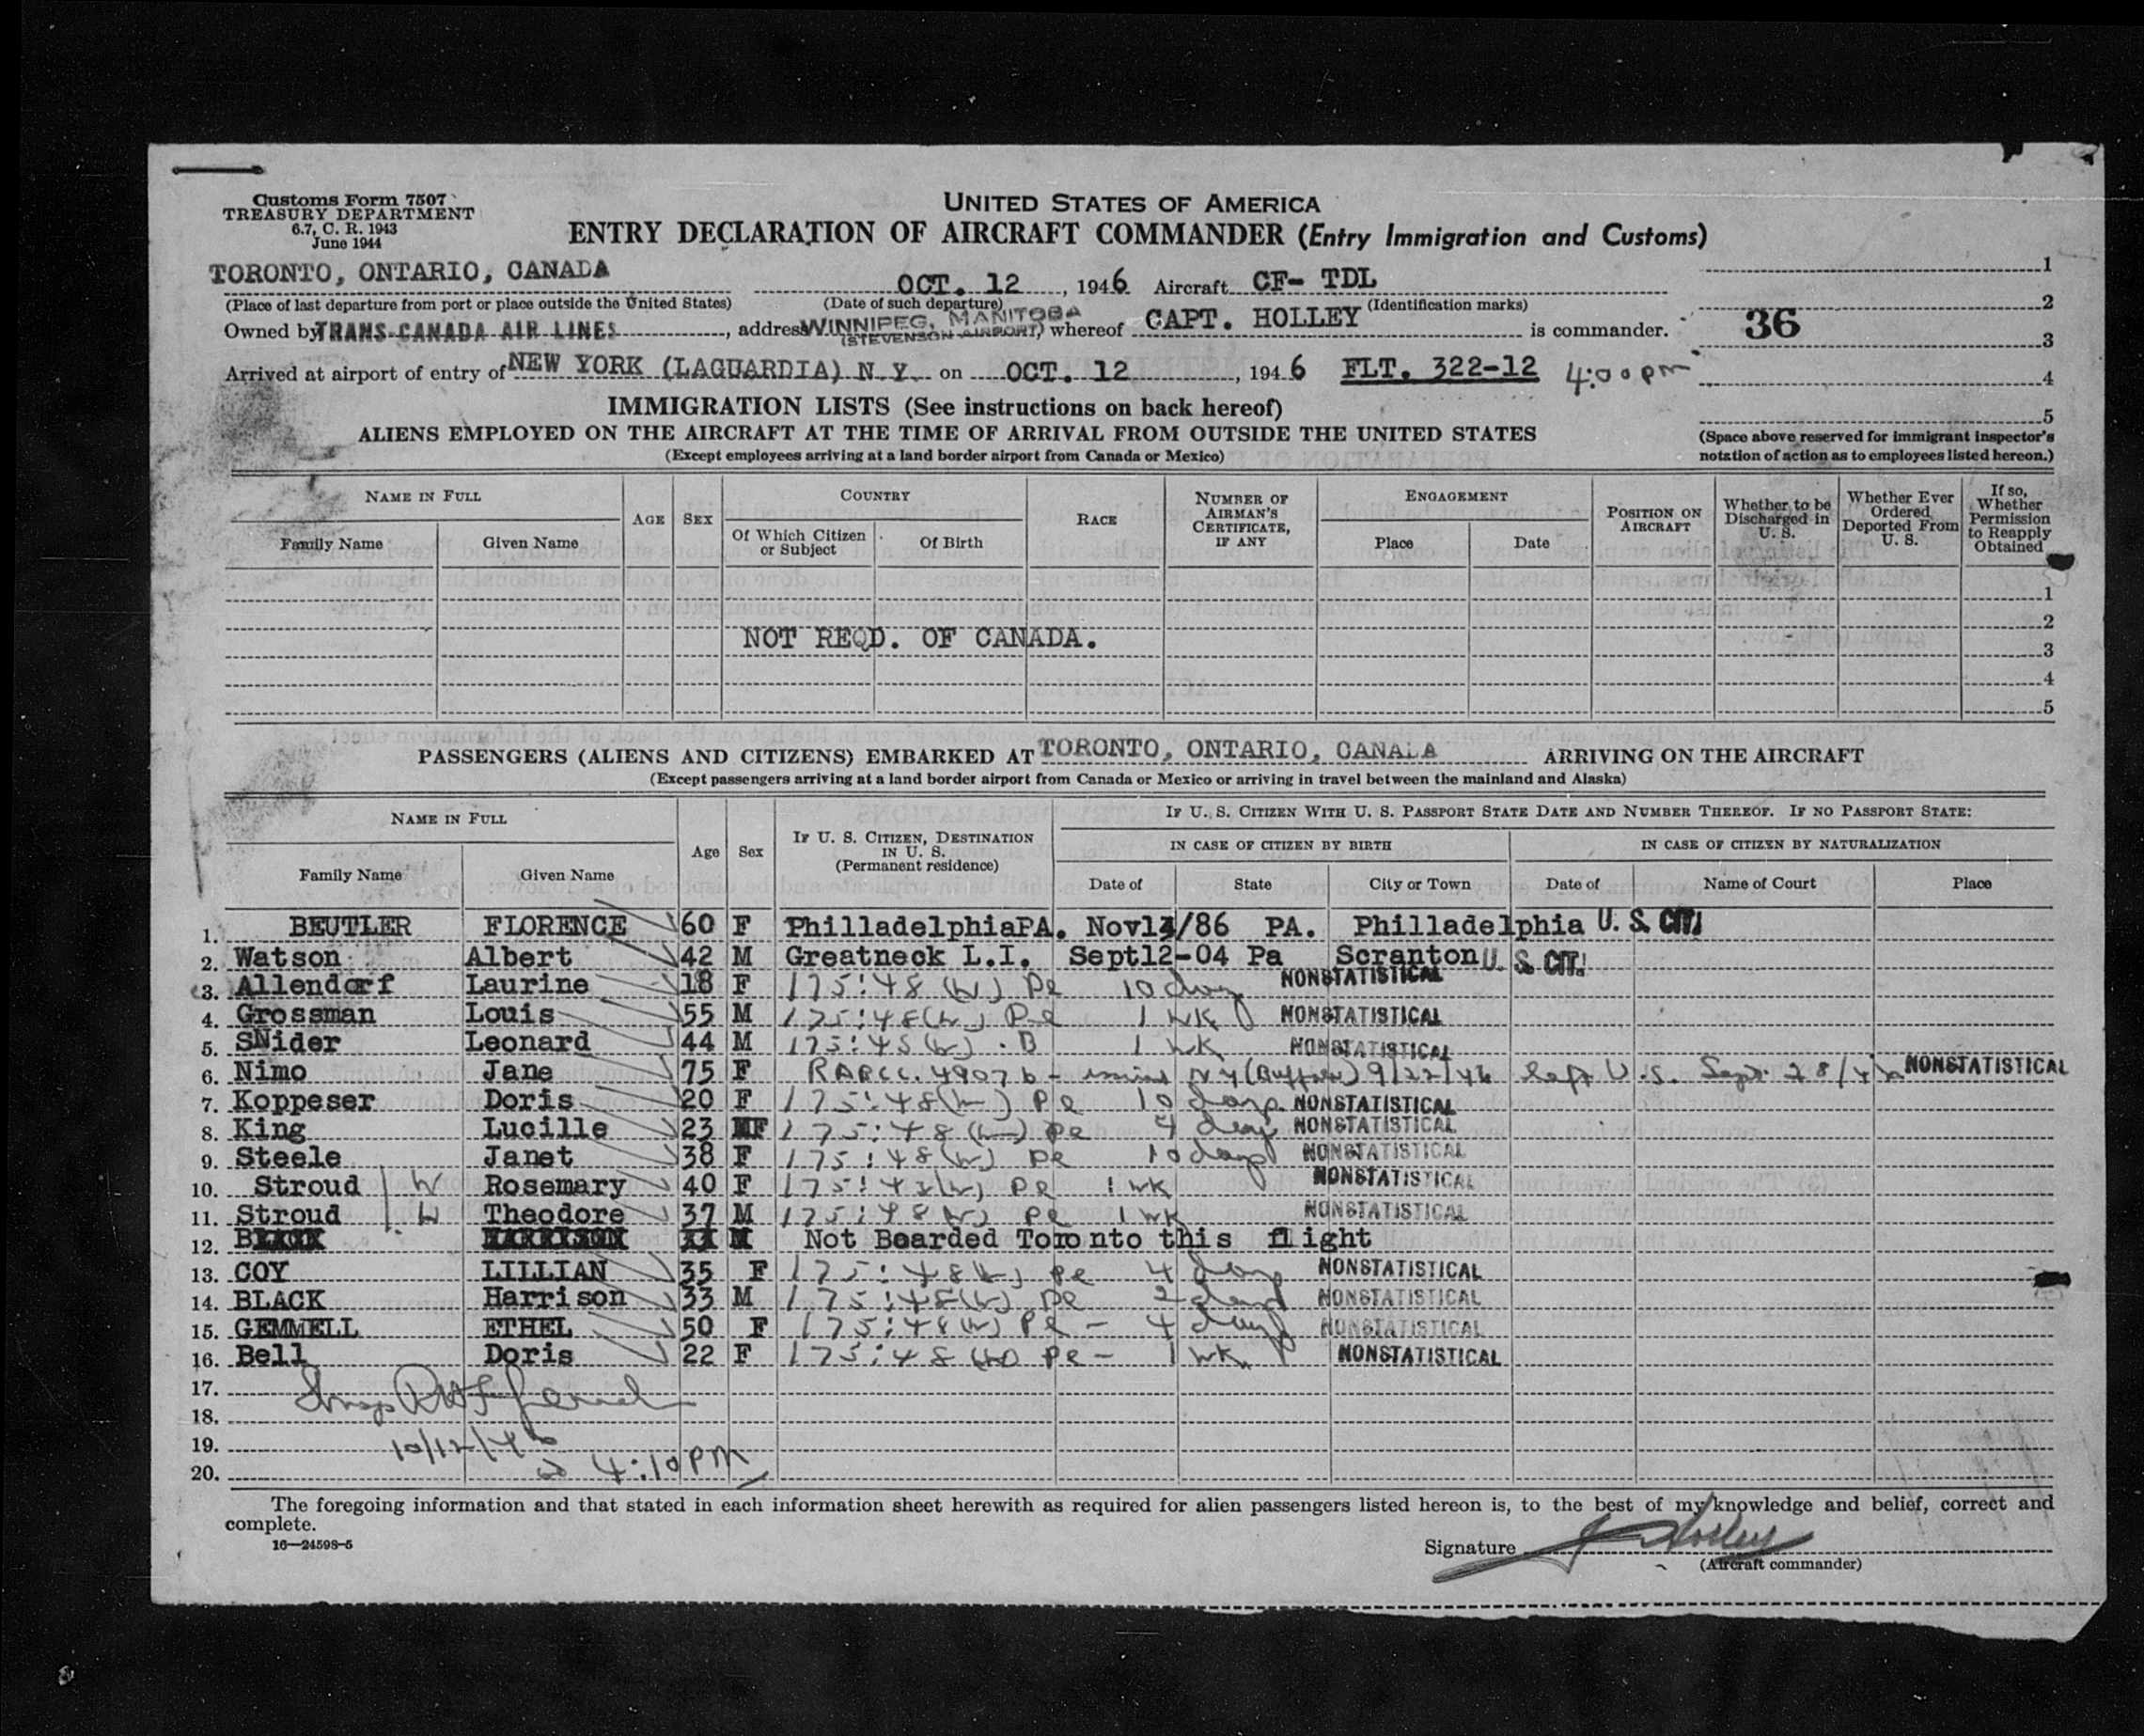 Customs Form 7507
TREASURY DEPARTMENT
6.7, C. R. 1943
June 1944
UNITED STATES OF AMERICA
ENTRY DECLARATION OF AIRCRAFT COMMANDER (Entry Immigration and Customs)
TORONTO, ONTARIO, CANADA OCT. 12, 1946 Aircraft CF- TDL 1
(Place of last departure from port or place outside the United States) (Date of such departure) (Identification marks) 2
Owned by TRANS-CANADA AIR LINES, address WINNIPEG, MANITOBA (STEVENSON AIRPORT) whereof CAPT. HOLLEY is commander. 36 3
Arrived at airport of entry of NEW YORK (LAGUARDIA) N Y on OCT. 12, 1946 FLT. 322-12 4:00 pm 4
IMMIGRATION LISTS (See instructions on back hereof) 5
ALIENS EMPLOYED ON THE AIRCRAFT AT THE TIME OF ARRIVAL FROM OUTSIDE THE UNITED STATES
(Except employees arriving at a land border airport from Canada or Mexico)
(Space above reserved for immigrant inspector's
notation of action as to employees listed hereon.)
NAME IN FULL AGE SEX COUNTRY RACE NUMBER OF AIRMAN'S CERTIFICATE, IF ANY ENGAGEMENT POSITION ON AIRCRAFT Whether to be Discharged in U. S. Whether Ever Ordered Deported From U. S. If so, Whether Permission to Reapply Obtained
Family Name Given Name Of Which Citizen or Subject Of Birth Place Date
1
2
NOT REQD. OF CANADA.
3
4
5
PASSENGERS (ALIENS AND CITIZENS) EMBARKED AT TORONTO, ONTARIO, CANADA ARRIVING ON THE AIRCRAFT
(Except passengers arriving at a land border airport from Canada or Mexico or arriving in travel between the mainland and Alaska)
NAME IN FULL Age Sex IF U. S. CITIZEN, DESTINATION IN U. S. (Permanent residence) IF U. S. CITIZEN WITH U. S. PASSPORT STATE DATE AND NUMBER THEREOF. IF NO PASSPORT STATE:
IN CASE OF CITIZEN BY BIRTH IN CASE OF CITIZEN BY NATURALIZATION
Family Name Given Name Date of State City or Town Date of Name of Court Place
1. BEUTLER FLORENCE 60 F PhilladelphiaPA. Nov /86 PA. Philladelphia U. S. CIT.
2. Watson Albert 42 M Greatneck L.I. Sept12-04 Pa Scranton U. S. CIT.
3. Allendorf Laurine 18 F 175:48 (w) Pe 10 days NONSTATISTICAL
4. Grossman Louis 55 M 175:48(w) Pe 1 wk NONSTATISTICAL
5. SNider Leonard 44 M 175:48(w) . B 1 wk NONSTATISTICAL
6. Nimo Jane 75 F 49076 - issued NY (Buffalo) 9/22/46 left U.S. Sept. 28/46 NONSTATISTICAL
7. Koppeser Doris 20 F 175:48(w) Pe 10 days NONSTATISTICAL
8. King Lucille 23 F 175:48(w) Pe 4 days NONSTATISTICAL
9. Steele Janet 38 F 175:48(w) Pe 10 days NONSTATISTICAL
10. Stroud W Rosemary 40 F 175:48(w) Pe 1 wk NONSTATISTICAL
11. Stroud H Theodore 37 M 175:48(w) Pe 1 wk NONSTATISTICAL
12. Not Boarded Toronto this flight
13. COY LILLIAN 35 F 175:48(w) Pe 4 days NONSTATISTICAL
14. BLACK Harrison 33 M 175:48(w) Pe 2 days NONSTATISTICAL
15. GEMMELL ETHEL 50 F 175:48(w) Pe - 4 days NONSTATISTICAL
16. Bell Doris 22 F 175:48(w) Pe - 1 wk NONSTATISTICAL
17.
18.
19. 10/12/46
20. 4:10 PM
The foregoing information and that stated in each information sheet herewith as required for alien passengers listed hereon is, to the best of my knowledge and belief, correct and
complete.
16—24598-5
Signature Holley
(Aircraft commander)